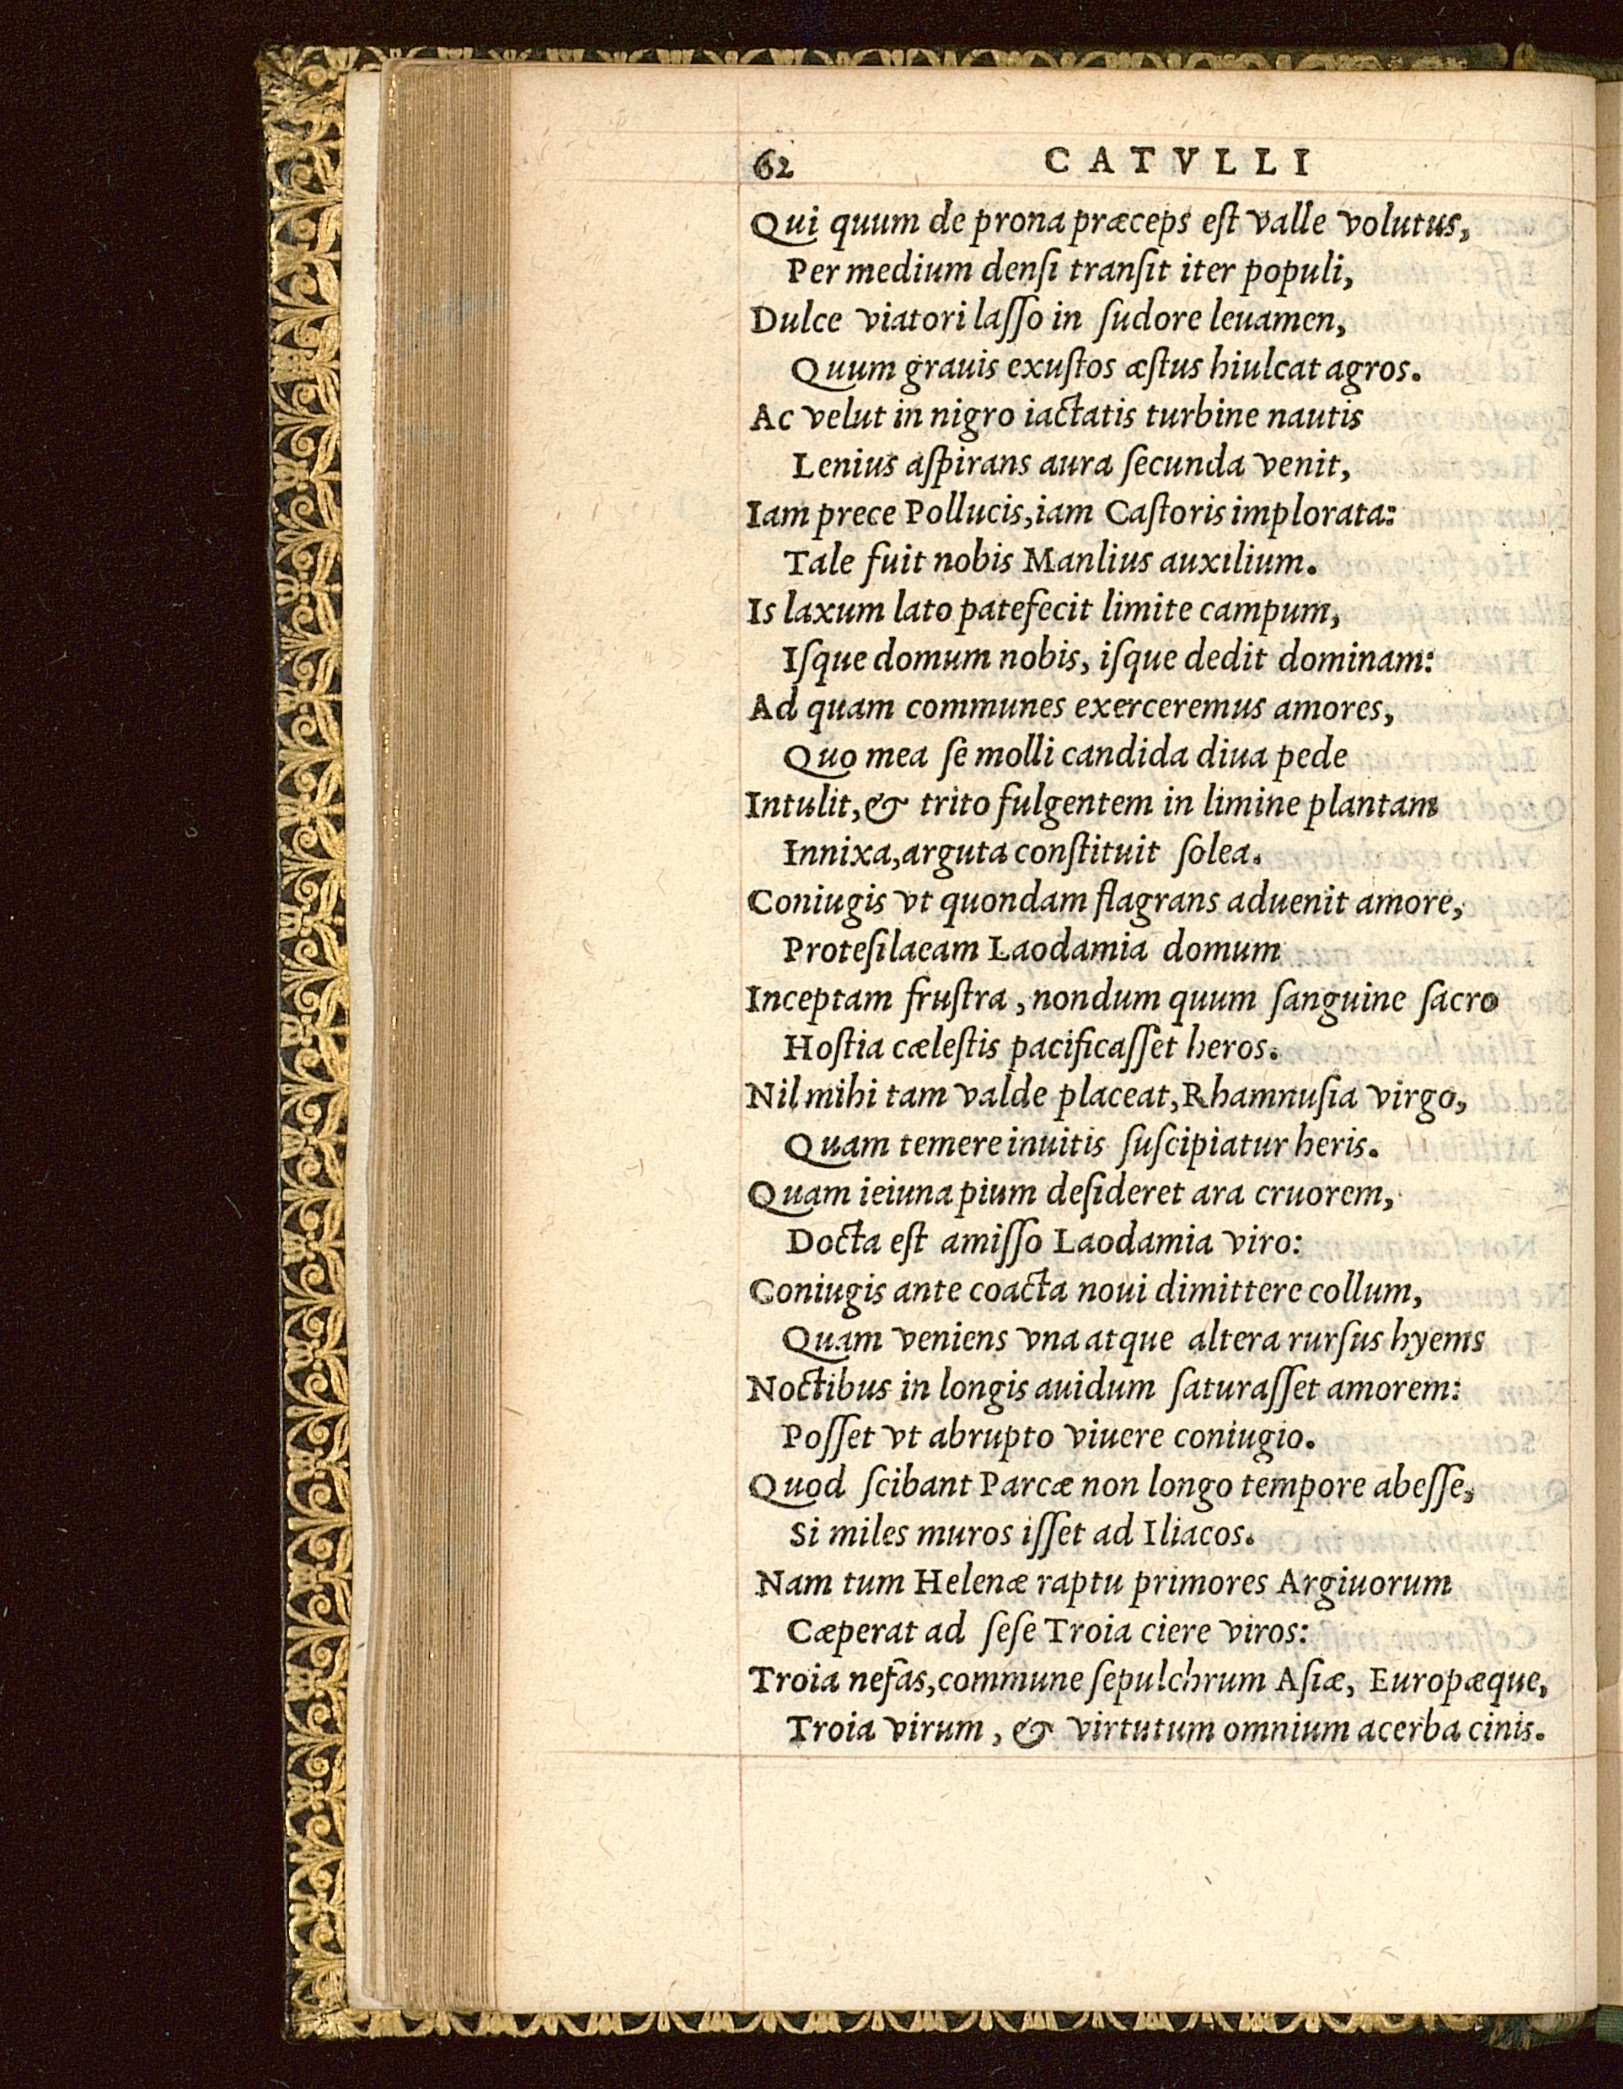 62 CATVLLI
Qui quum de prona præceps eſt valle volutus,
Per medium denſi tranſit iter populi,
Dulce viatori laſſo in ſudore leuamen,
Quum grauis exuſtos æſtus hiulcat agros.
Ac velut in nigro iactatis turbine nautis
Lenius aſpirans aura ſecunda venit,
Iam prece Pollucis,iam Caſtoris implorata:
Tale fuit nobis Manlius auxilium.
Is laxum lato patefecit limite campum,
Iſque domum nobis, iſque dedit dominam:
Ad quam communes exerceremus amores,
Quo mea ſe molli candida diua pede
Intulit,& trito fulgentem in limine plantam
Innixa,arguta conſtituit ſolea.
Coniugis vt quondam flagrans aduenit amore,
Proteſilaeam Laodamia domum
Inceptam fruſtra , nondum quum ſanguine ſacro
Hoſtia cæleſtis pacificaſſet heros.
Nil mihi tam valde placeat,Rhamnuſia virgo,
Quam temere inuitis ſuſcipiatur heris.
Quam ieiuna pium deſideret ara cruorem,
Docta eſt amiſſo Laodamia viro:
Coniugis ante coacta noui dimittere collum,
Quam veniens vna atque altera rurſus hyems
Noctibus in longis auidum ſaturaſſet amorem:
Poſſet vt abrupto viuere coniugio.
Quod ſcibant Parcæ non longo tempore abeſſe,
Si miles muros iſſet ad Iliacos.
Nam tum Helenæ raptu primores Argiuorum
Cæperat ad ſeſe Troia ciere viros:
Troia nefas,commune ſepulchrum Aſiæ, Europæque,
Troia virum , & virtutum omnium acerba cinis.